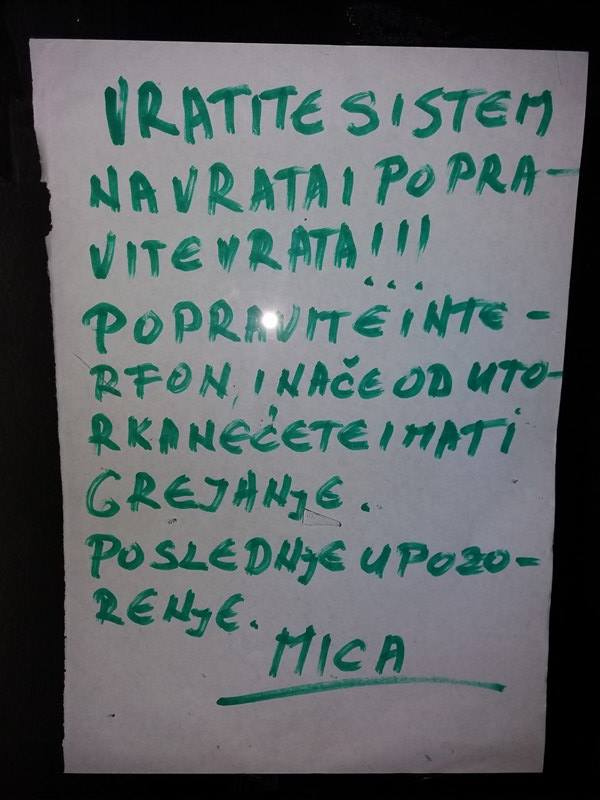 VRATITE SISTEM
NA VRATA I POPRA-
VITE VRATA!!!
POPRAVITE INTE-
RFON, INAČE OD UTO-
RKA NEĆETE IMATI
GREJANJE.
POSLEDNJE UPOZO-
RENJE.
MICA